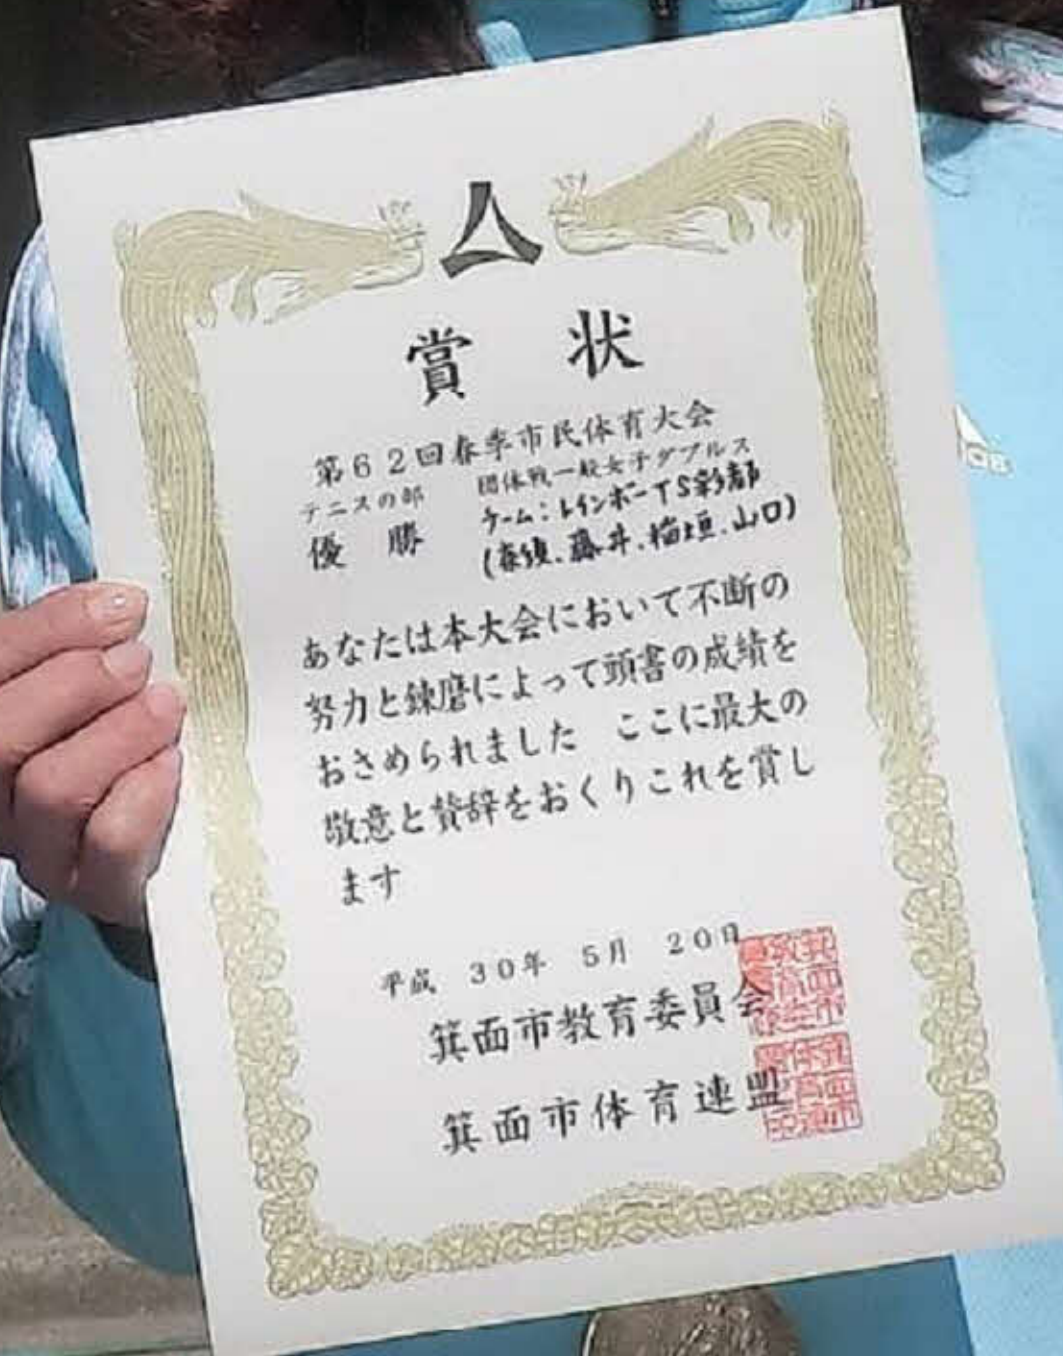 賞状
第62回春季市民体育大会
テニスの部 団体戦一般女子ダブルス
優勝 チーム:レインボーTS彩都
(春須.藤井.稲垣.山口)
あなたは本大会において不断の
努力と錬磨によって頭書の成績を
おさめられました ここに最大の
敬意と賛辞をおくりこれを賞し
ます
平成 30年 5月 20日
箕面市教育委員会
箕面市体育連盟